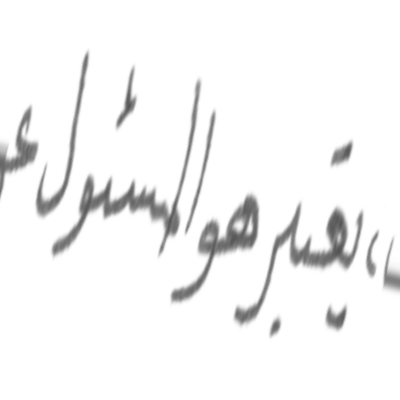 ،، يعتبر هو المسئول